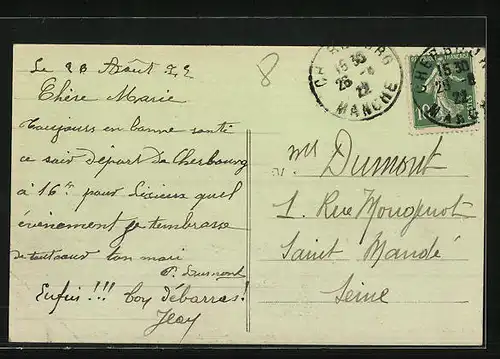 Le 28 Août 22
Chère Marie
Toujours en bonne santé
ce soir départ de Cherbourg
à 16h pour Lisieux quel
événement je t'embrasse
de tout cœur ton mari
P. Dumont
Enfin !!! débarras !
8
CHERBOURG
15 30
28 -8
22
MANCHE
CHERBOURG
15 30
28 -8
22
MANCHE
10
Dumont
1. Rue Mougenot
Saint Mandé
Seine